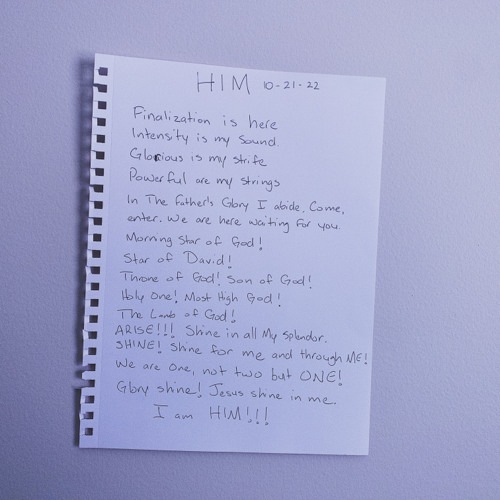 HIM 10-21-22
Finalization is here
Intensity is my sound.
Glorious is my strife
Powerful are my strings
In The Father's Glory I abide. Come,
enter. We are here waiting for you.
Morning Star of God!
Star of David!
Throne of God! Son of God!
Holy One! Most High God!
The Lamb of God!
ARISE!!! Shine in all My splendor.
SHINE! Shine for me and through ME!
We are One, not two but ONE!
Glory shine! Jesus shine in me.
I am HIM!!!